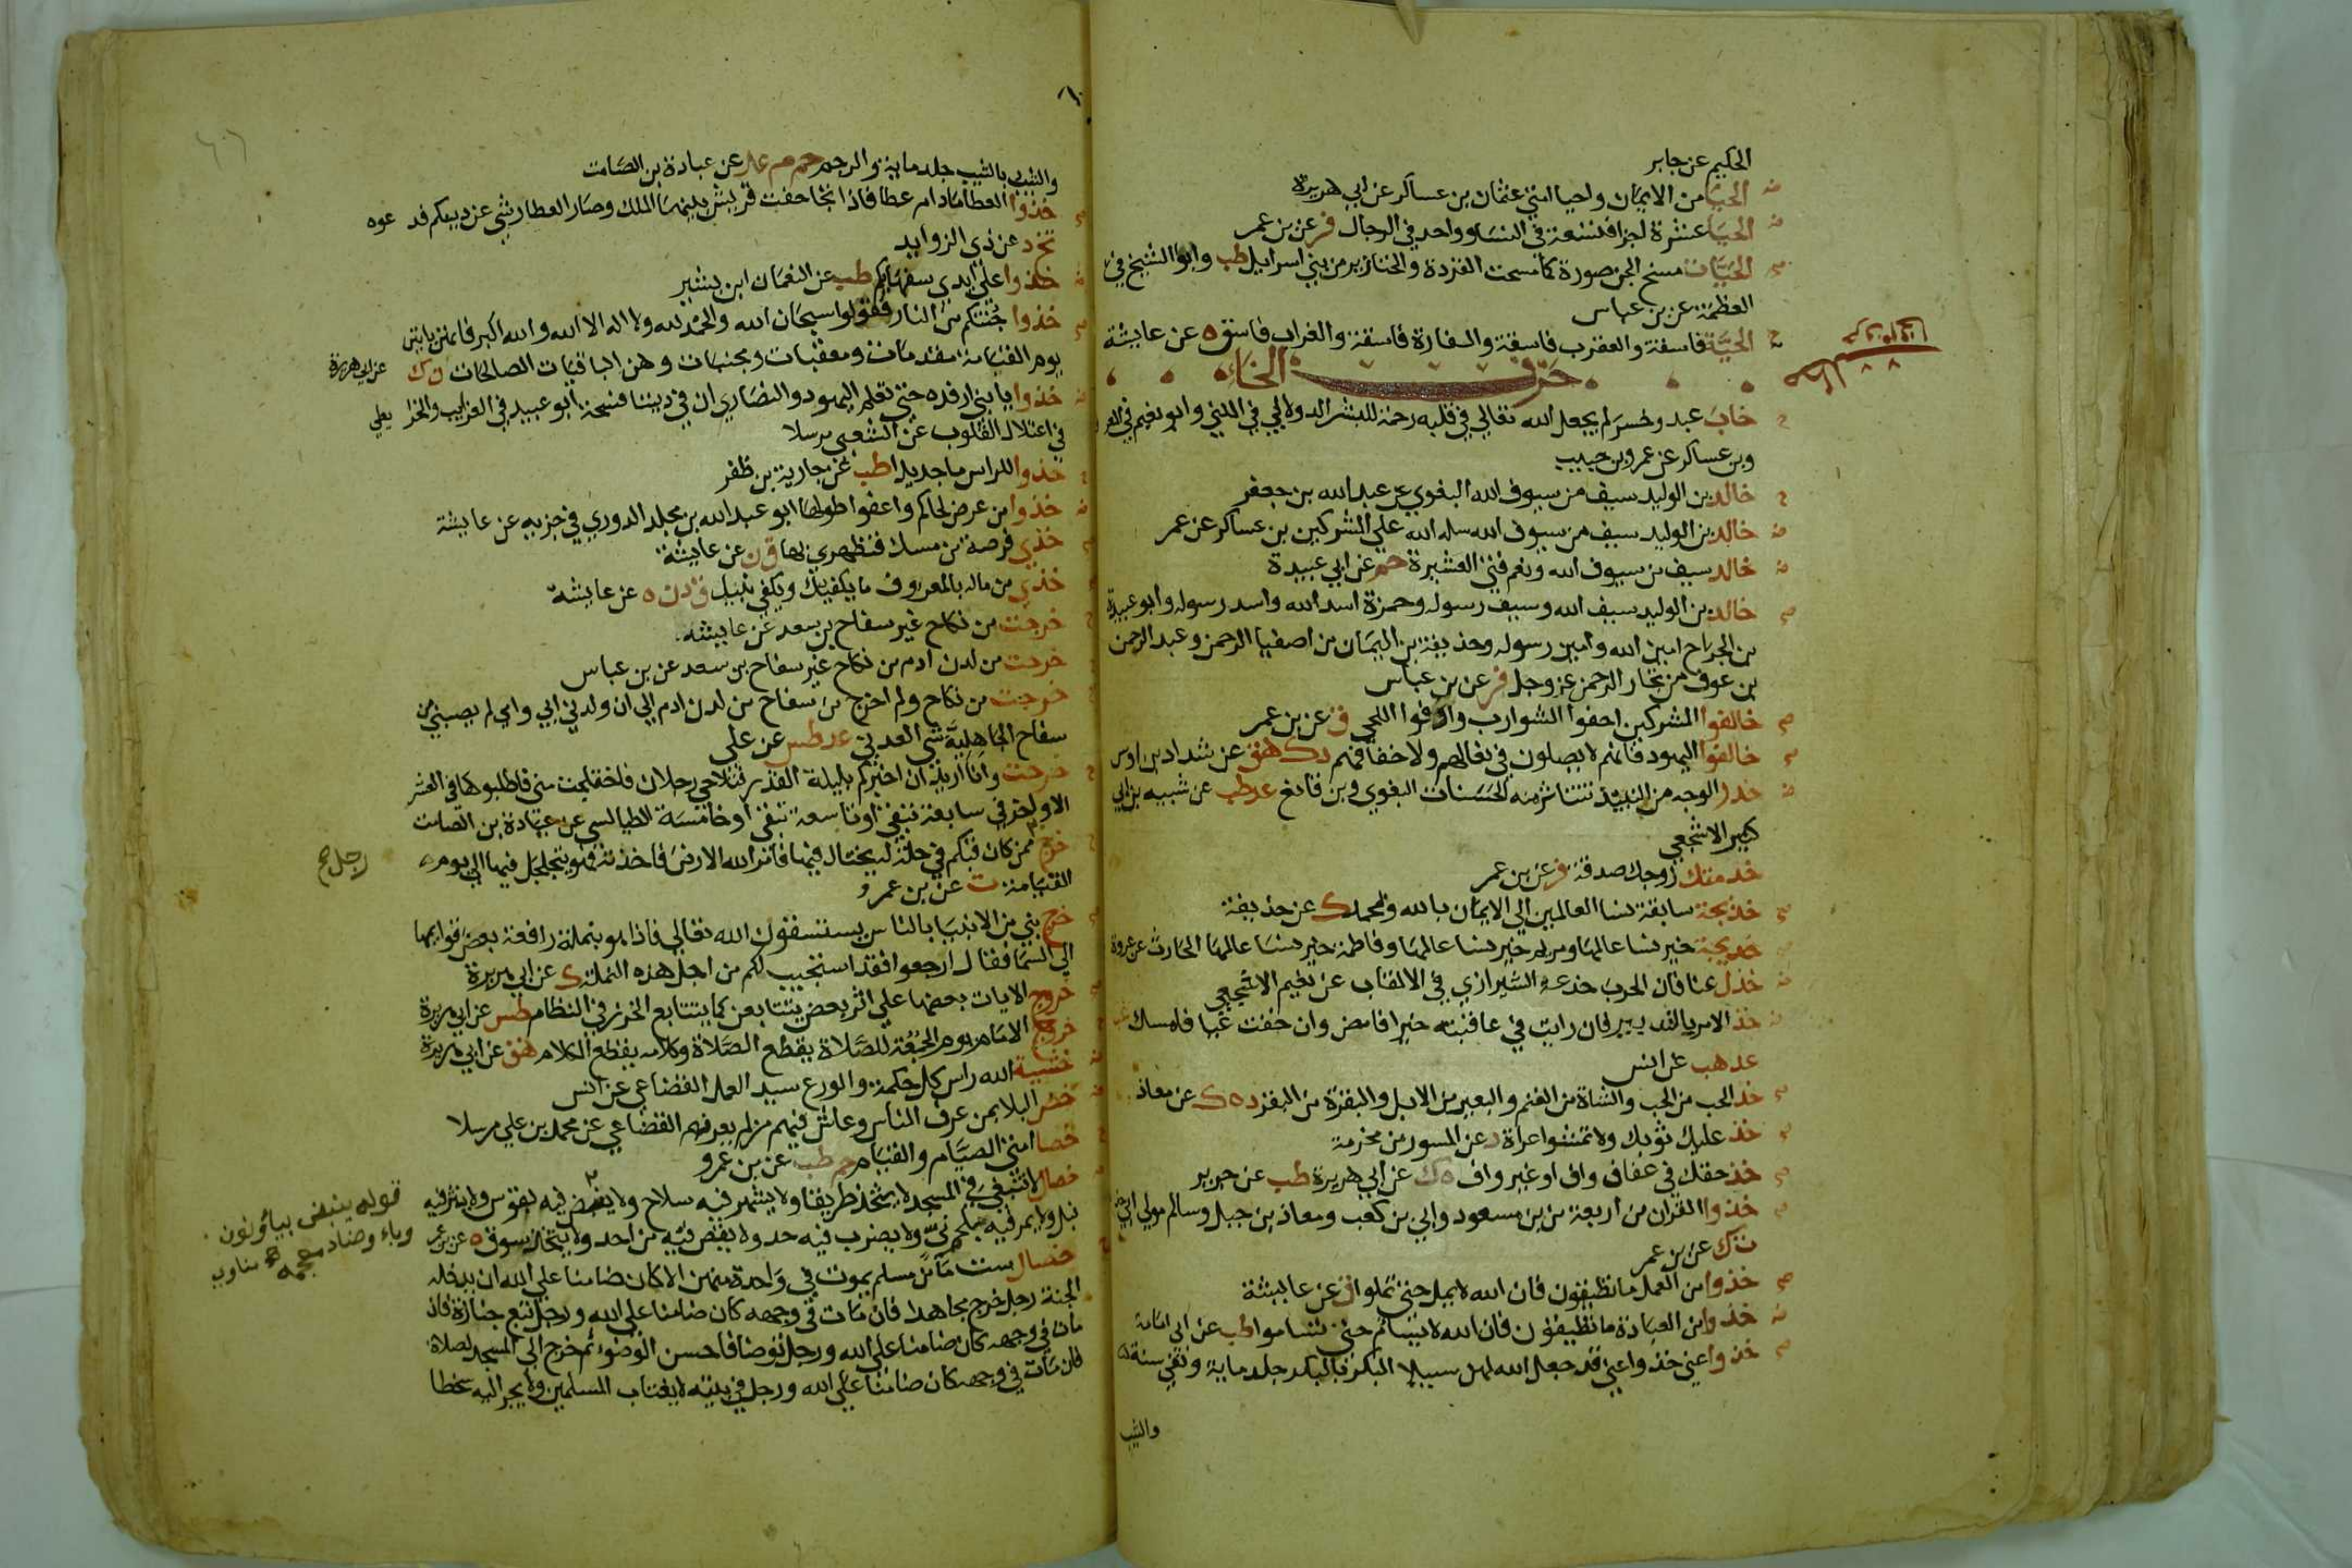 الحكيم عن جابر
الحيا من الايمان واحيا امتي عثمان بن عساكر عن ابي هريرة
الحيا عشرة اجزا فتسعة في النسا وواحد في الرجال فر عن بن عمر
الحيات مسخ الجن صورة كما مسخت القردة والخنازير من بني اسرايل طب وابو الشيخ في
العظمة عن بن عباس
الحية فاسقة والعقرب فاسقة والفارة فاسقة والغراب فاسق ه عن عايشة
حرف الخاء
خاب عبد وخسر لم يجعل الله تعالي في قلبه رحمة للبشر الدولابي في الكني وابو نعيم في
وبن عساكر عن عمرو بن حبيب
خالد بن الوليد سيف من سيوف الله البغوي عن عبد الله بن جعفر
خالد بن الوليد سيف من سيوف الله سله الله علي المشركين بن عساكر عن عمر
خالد سيف من سيوف الله ونعم فتي العشيرة حم عن ابي عبيدة
خالد بن الوليد سيف الله وسيف رسوله وحمزة اسد الله واسد رسوله وابو عبيدة
بن الجراح امين الله وامين رسوله وحذيفة بن اليمان من اصفيا الرحمن وعبد الرحمن
بن عوف من تجار الرحمن عز وجل فر عن بن عباس
خالفوا المشركين احفوا الشوارب واوفوا اللحي ق عن بن عمر
خالفوا اليهود فانهم لا يصلون في نعالهم ولا خفافهم د ك هق عن شداد بن اوس
خدر الوجه من النبيذ تتناثر منه الحسنات البغوي وبن قانع عد طب عن شيبة بن ابي
كبير الاشجعي
خدمتك زوجك صدقة فر عن بن عمر
خديجة سابقة نسا العالمين الي الايمان بالله ومحمد ك عن حذيفة
خديجة خير نسا عالمها ومريم خير نسا عالمها وفاطمة خير نسا عالمها الحارث عن عروة
خذل عنا فان الحرب خدعة الشيرازي في الالقاب عن نعيم الاشجعي
خذ الامر بالتدبير فان رايت في عاقبته خيرا فامض وان خفت غيا فامسك عب
عد هب عن انس
خذ الحب من الحب والشاة من الغنم والبعير من الابل والبقرة من البقر د ه ك عن معاذ
خذ عليك ثوبك ولا تمشوا عراة د عن المسور بن مخرمة
خذ حقك في عفاف واف او غير واف ه ك عن ابي هريرة طب عن جرير
خذوا القران من اربعة من بن مسعود وابي بن كعب ومعاذ بن جبل وسالم مولي ابي
ت ك عن بن عمر
خذوا من العمل ما تطيقون فان الله لا يمل حتي تملوا ق عن عايشة
خذوا من العبادة ما تطيقون فان الله لا يسام حتي تساموا طب عن ابي امامة
خذوا عني خذوا عني قد جعل الله لهن سبيلا البكر بالبكر جلد ماية ونفي سنة
والثيب
والثيب بالثيب جلد ماية والرجم حم م عد عن عبادة بن الصامت
خذوا العطا مادام عطا فاذا تجاحفت قريش بينها الملك وصار العطا رشي عن دينكم فدعوه
تخ د عن ذي الزوايد
خذوا علي ايدي سفهايكم طب عن النعمان ابن بشير
خذوا جنتكم من النار فقولوا سبحان الله والحمد لله ولا اله الا الله والله اكبر فانهن ياتين
يوم القيامة مقدمات ومعقبات ومجنبات وهن الباقيات الصالحات ن ك عن ابي هريرة
خذوا يا بني ارفده حتي تعلم اليهود والنصاري ان في ديننا فسحة ابو عبيد في الغرايب والخرايطي
في اعتلال القلوب عن الشعبي مرسلا
خذوا للراس ما جديدا طب عن جارية بن ظفر
خذوا من عرض لحاكم واعفوا طولها ابو عبد الله بن مخلد الدوري في جزيه عن عايشة
خذي فرصة من مسك فتطهري بها ق ن عن عايشة
خذي من ماله بالمعروف ما يكفيك ويكفي بنيك ق د ن ه عن عايشة
خرجت من نكاح غير سفاح بن سعد عن عايشة
خرجت من لدن ادم من نكاح غير سفاح بن سعد عن بن عباس
خرجت من نكاح ولم اخرج من سفاح من لدن ادم الي ان ولدني ابي وامي لم يصبني من
سفاح الجاهلية شي العدني عد طس عن علي
خرجت وانا اريد ان اخبركم بليلة القدر فتلاحي رجلان فاختلجت مني فاطلبوها في العشر
الاواخر في سابعة تبقي او تاسعة تبقي او خامسة الطيالسي عن عبادة بن الصامت
خرج ممن كان قبلكم في حلة له يختال فيها فامر الله الارض فاخذته فهو يتجلجل فيها الي يوم
رجل صح
القيامة ت عن بن عمرو
خرج نبي من الانبيا بالناس يستسقون الله تعالي فاذا هو بنملة رافعة بعض قوايمها
الي السما فقال ارجعوا فقد استجيب لكم من اجل هذه النملة ك عن ابي هريرة
خروج الايات بعضها علي اثر بعض يتتابعن كما يتتابع الخرز في النظام طس عن ابي هريرة
خروج الامام يوم الجمعة للصلاة يقطع الصلاة وكلامه يقطع الكلام هق عن ابي هريرة
خشية الله راس كل حكمة والورع سيد العمل القضاعي عن انس
خص البلا بمن عرف الناس وعاش فيهم من لم يعرفهم القضاعي عن محمد بن علي مرسلا
خصا امتي الصيام والقيام حم طب عن بن عمرو
خصال لا تنبغي في المسجد لا يتخذ طريقا ولا يشهر فيه سلاح ولا ينبض فيه بقوس ولا ينثر فيه
نبل ولا يمر فيه بلحم ني ولا يضرب فيه حد ولا يقتص فيه من احد ولا يتخذ سوق ه عن بن عمر
قوله ينبض بياء ونون
وباء وضاد معجمة مناوي
خصال ست ما من مسلم يموت في واحدة منهن الا كان ضامنا علي الله ان يدخله
الجنة رجل خرج مجاهدا فان مات في وجهه كان ضامنا علي الله ورجل تبع جنازة فان
مات في وجهه كان ضامنا علي الله ورجل توضا فاحسن الوضوء ثم خرج الي المسجد لصلاة
فان مات في وجهه كان ضامنا علي الله ورجل في بيته لا يغتاب المسلمين ولا يجر اليه سخطا